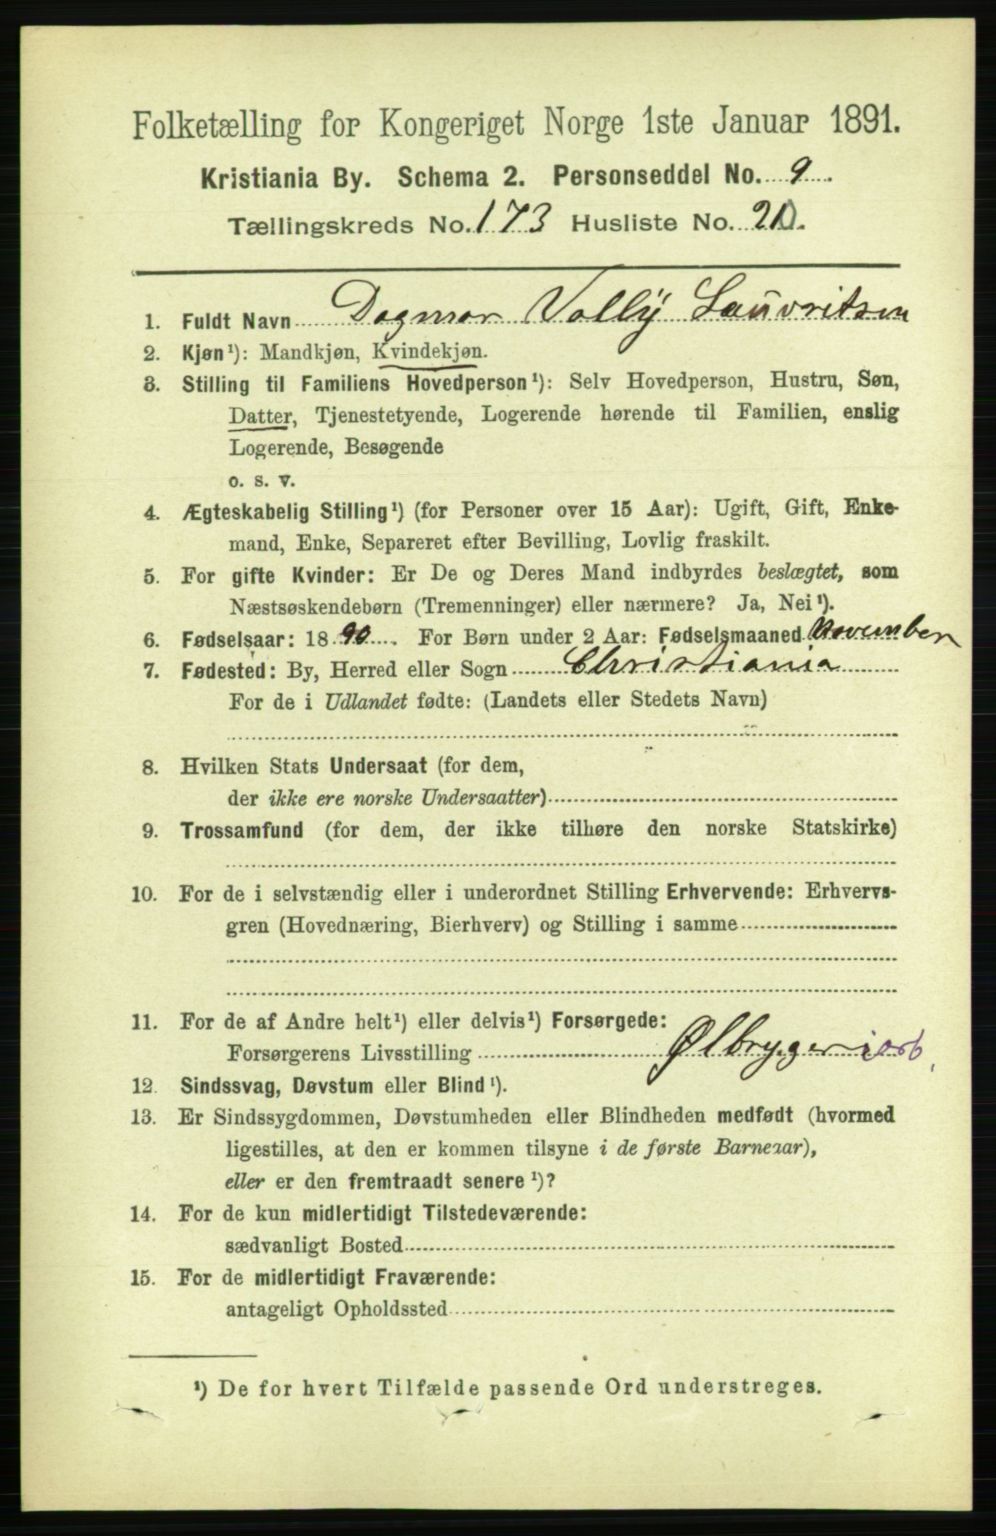 Folketælling for Kongeriget Norge 1ste Januar 1891.
Kristiania By. Schema 2. Personseddel No. 9.
Tællingskreds No. 173 Husliste No. 210.
1. Fuldt Navn Dagmar Vally Lauvritsen
2. Kjøn¹): Mandkjøn, Kvindekjøn.
3. Stilling til Familiens Hovedperson¹): Selv Hovedperson, Hustru, Søn,
Datter, Tjenestetyende, Logerende hørende til Familien, enslig
Logerende, Besøgende
o. s. v.
4. Ægteskabelig Stilling¹) (for Personer over 15 Aar): Ugift, Gift, Enke-
mand, Enke, Separeret efter Bevilling, Lovlig fraskilt.
5. For gifte Kvinder: Er De og Deres Mand indbyrdes beslægtet, som
Næstsøskendebørn (Tremenninger) eller nærmere? Ja, Nei¹).
6. Fødselsaar: 1890. For Børn under 2 Aar: Fødselsmaaned November
7. Fødested: By, Herred eller Sogn Christiania
For de i Udlandet fødte: (Landets eller Stedets Navn)
8. Hvilken Stats Undersaat (for dem,
der ikke ere norske Undersaatter)
9. Trossamfund (for dem, der ikke tilhøre den norske Statskirke)
10. For de i selvstændig eller i underordnet Stilling Erhvervende: Erhvervs-
gren (Hovednæring, Bierhverv) og Stilling i samme
11. For de af Andre helt¹) eller delvis¹) Forsørgede:
Forsørgerens Livsstilling Ølbryggeriarb.
12. Sindssvag, Døvstum eller Blind¹).
13. Er Sindssygdommen, Døvstumheden eller Blindheden medfødt (hvormed
ligestilles, at den er kommen tilsyne i de første Barneaar),
eller er den fremtraadt senere¹)?
14. For de kun midlertidigt Tilstedeværende:
sædvanligt Bosted
15. For de midlertidigt Fraværende:
antageligt Opholdssted
¹) De for hvert Tilfælde passende Ord understreges.